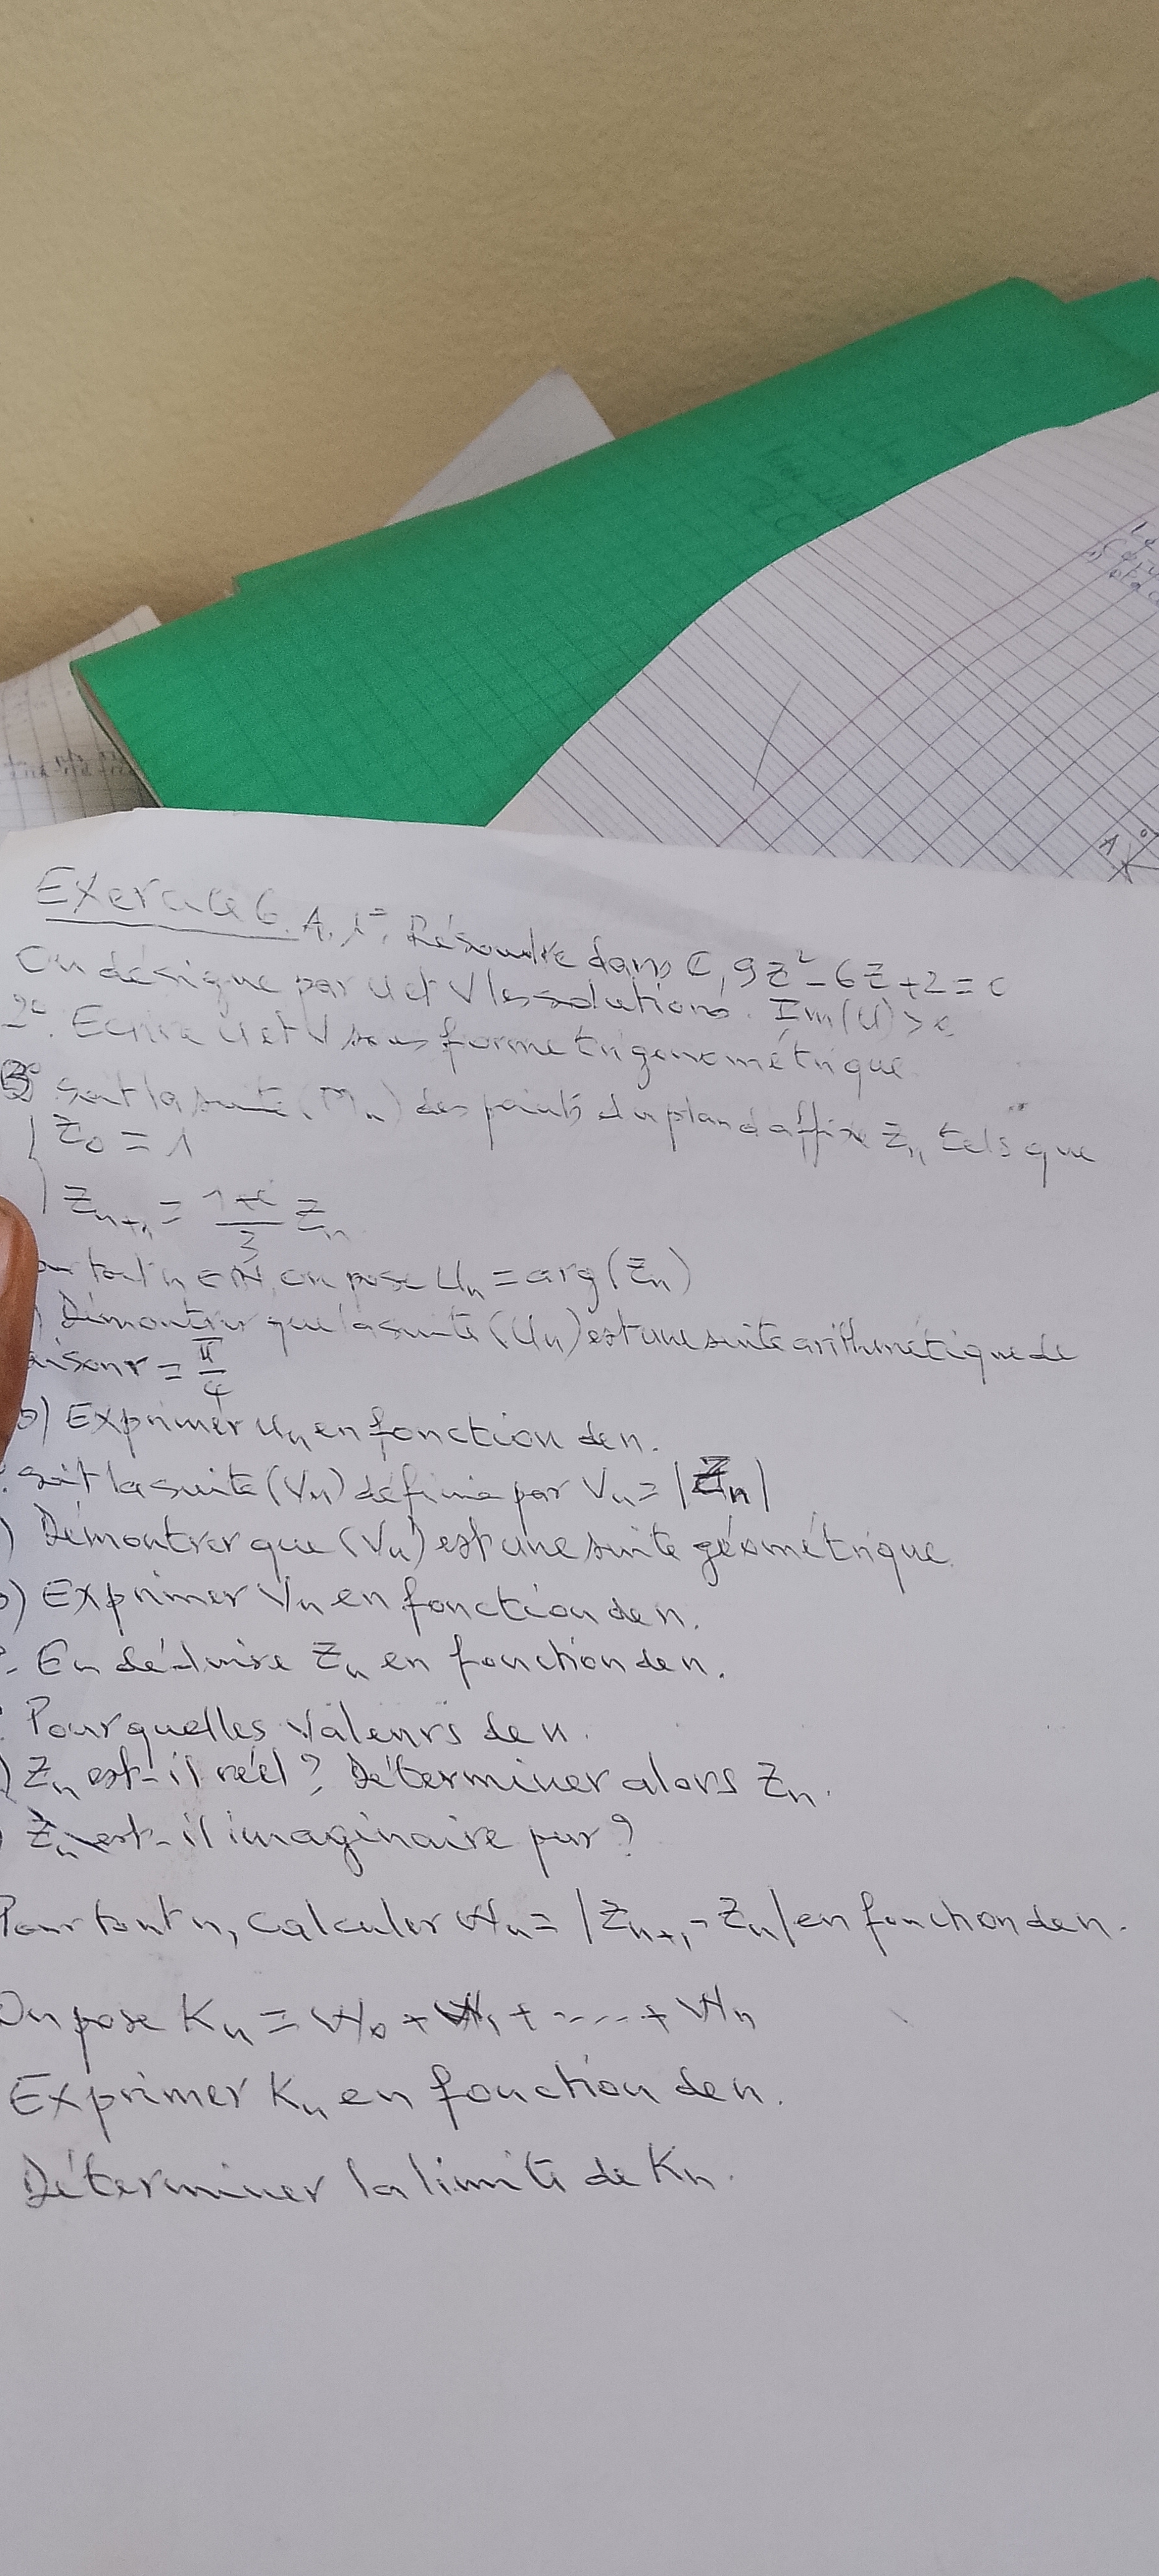 Exercice 6. A. 1°. Résoudre dans C, 9z² - 6z + 2 = 0
On désigne par U et V les solutions. Im(U) > 0
2°. Ecrire U et V sous forme trigonométrique.
B Soit la suite (Mn) des points du plan d'affixe Zn tels que
Z0 = 1
Zn+1 = 1+i/3 Zn
our tout n ∈ N, on pose Un = arg(Zn)
) Démontrer que la suite (Un) est une suite arithmétique de
aison r = π/4
b) Exprimer Un en fonction de n.
Soit la suite (Vn) définie par Vn = |Zn|
) Démontrer que (Vn) est une suite géométrique.
b) Exprimer Vn en fonction de n.
- En déduire Zn en fonction de n.
Pour quelles valeurs de n.
) Zn est-il réel ? Déterminer alors Zn.
) Zn est-il imaginaire pur ?
Pour tout n, calculer Wn = |Zn+1 - Zn| en fonction de n.
On pose Kn = W0 + W1 + ..... + Wn
Exprimer Kn en fonction de n.
Déterminer la limite de Kn.